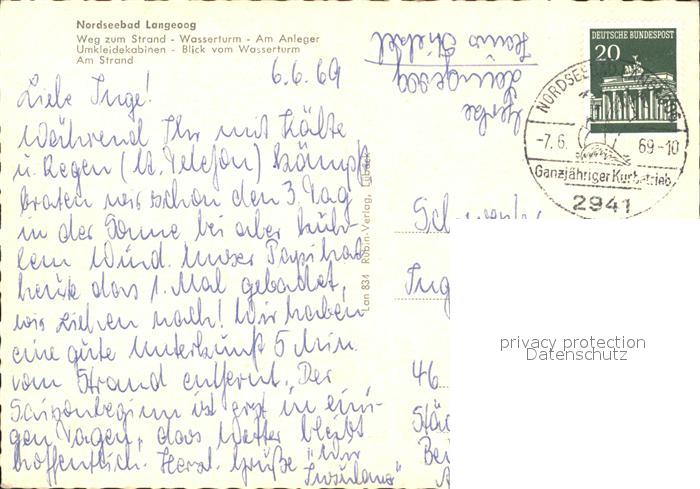 Nordseebad Langeoog
Weg zum Strand - Wasserturm - Am Anleger
Umkleidekabinen - Blick vom Wasserturm
Am Strand
6.6.69
Liebe Inge!
Während Ihr mit Kälte
u. Regen (lt. Telefon) kämpft
braten wir schon den 3. Tag
in der Sonne bei aber küh-
lem Wind. Unser Papi hat
heute das 1. Mal gebadet,
wir ziehen nach! Wir haben
eine gute Unterkunft 5 Min.
vom Strand entfernt. Der
Saisonbeginn ist erst in eini-
gen Tagen, das Wetter bleibt
hoffentlich. Herzl. Grüße "Wir
Insulaner"
Langeoog
Haus
Lan 834 Rubin-Verlag, Lübeck
DEUTSCHE BUNDESPOST
20
NORDSEEBAD LANGEOOG
-7.6. 69-10
Ganzjähriger Kurbetrieb
2941
Schwester
Ing
46
Bei
privacy protection
Datenschutz